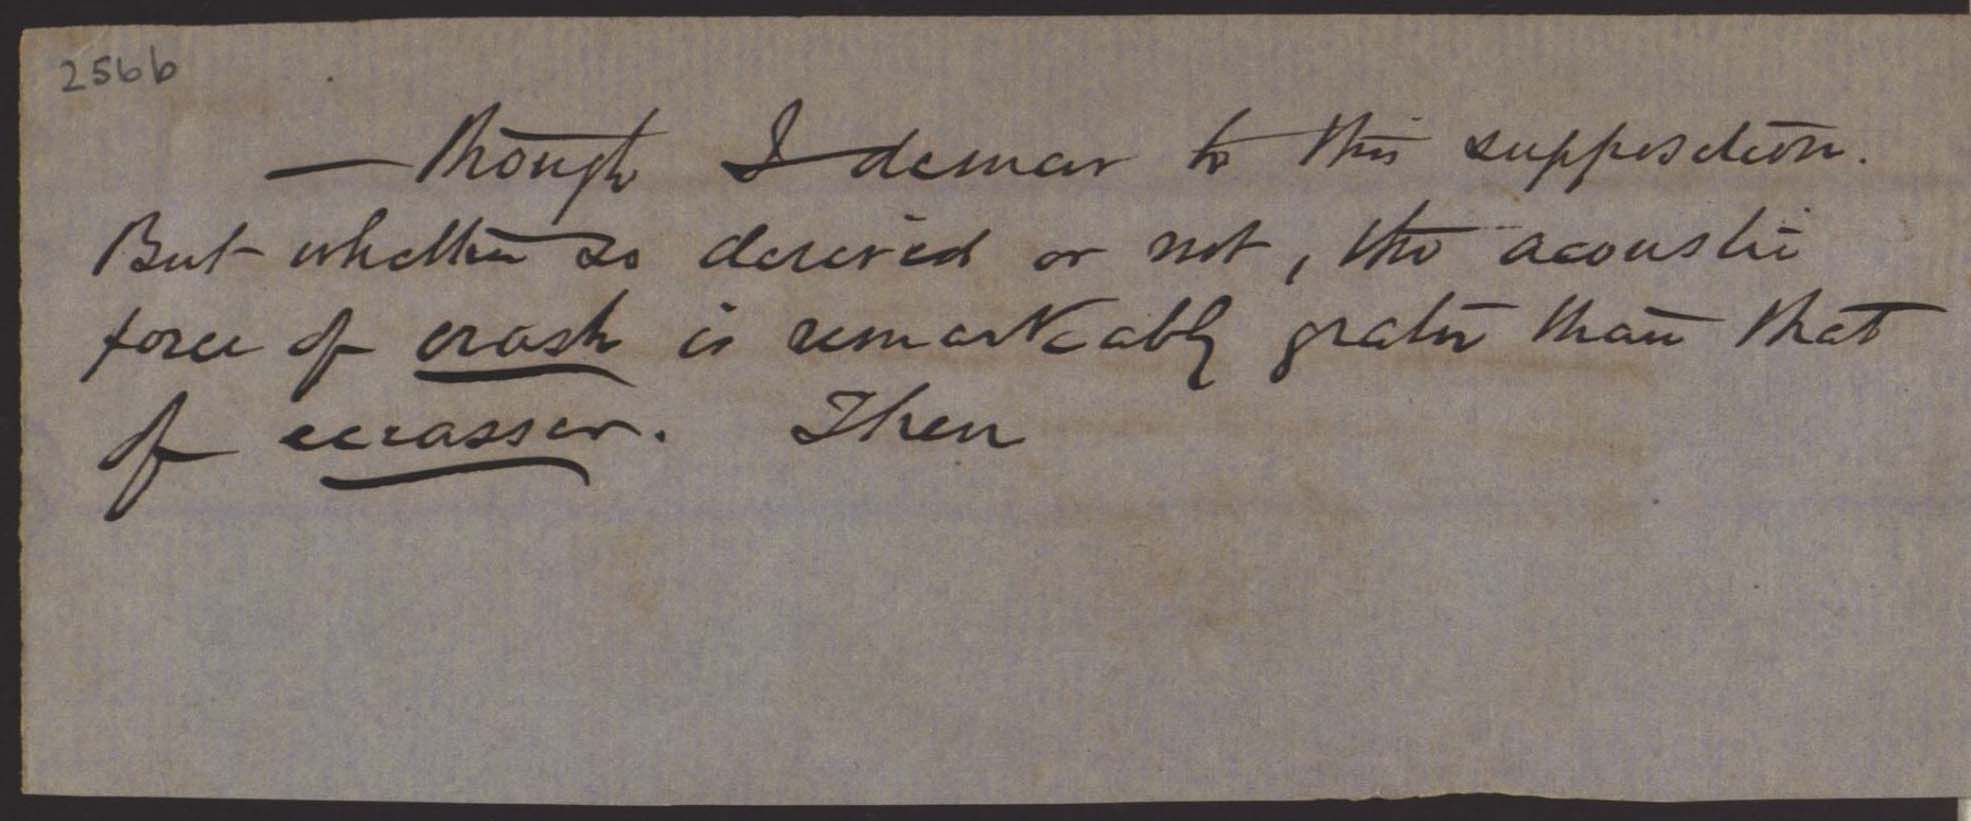 2566
— though I demur to this supposition.
But whether so derived or not, the acoustic
force of crash is remarkably grater than that
of ecrasser. Then